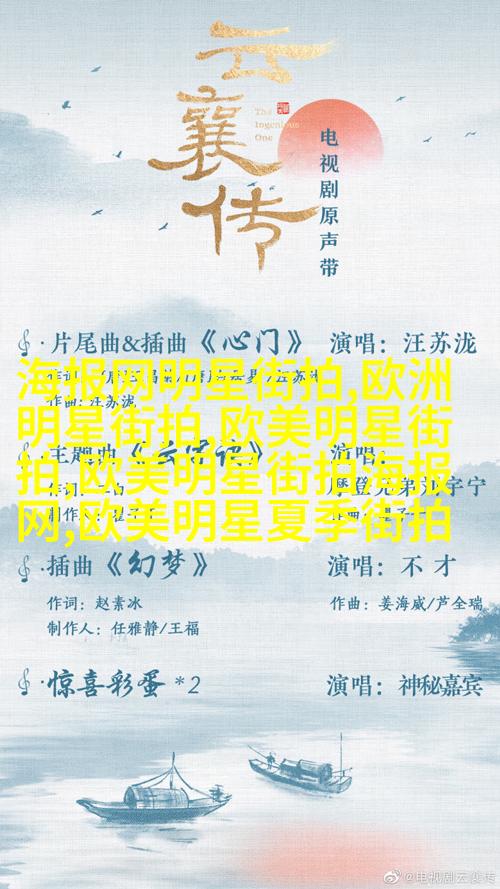 云襄传
The
Ingenious
One
电视剧原声带
片尾曲&插曲《心门》 演唱：汪苏泷
海报网明星街拍,欧洲
作曲：汪苏泷
明星街拍,欧美明星街
主题曲
拍,欧美明星街拍海报
网,欧美明星夏季街拍
插曲《幻梦》 演唱：不才
作词：赵素冰 作曲：姜海威/芦全瑞
制作人：任雅静/王福
惊喜彩蛋*2 演唱：神秘嘉宾
@电视剧云襄传